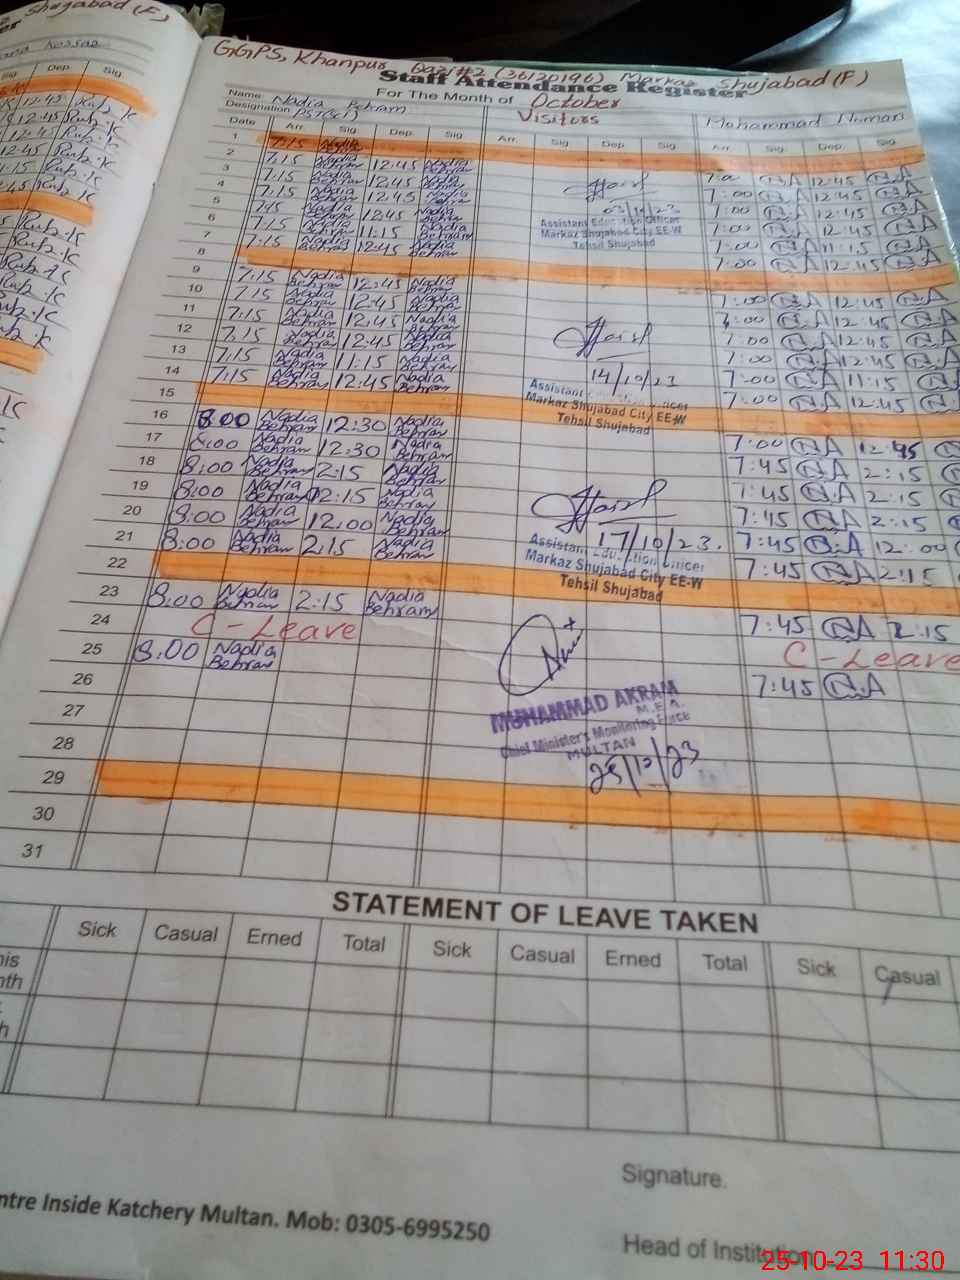 Shujabad (F)
GGPS, Khanpur Qazi #2 (36120196) Markaz Shujabad (F)
Staff Attendance Register
For The Month of October
Name Nadia Behram Visitors Mohammad Numan
Designation PST
Date Arr. Sig. Dep. Sig. Arr. Sig. Dep. Sig. Arr. Sig. Dep. Sig.
1 7:15 Nadia
2 7:15 Nadia Behram 12:45 Nadia Behram 7:00 N.A 12:45 N.A
3 7:15 Nadia Behram 12:45 Nadia Behram 7:00 N.A 12:45 N.A
4 7:15 Nadia Behram 12:45 Nadia Behram 7:00 N.A 12:45 N.A
5 Nadia Behram 12:45 Nadia Behram 7:00 N.A 12:45 N.A
6 7:15 Nadia Behram 11:15 Nadia Behram 7:00 N.A 11:15 N.A
7 7:15 Nadia Behram 12:45 Nadia Behram 7:00 N.A 12:45 N.A
03/10/23
Assistant Education Officer
Markaz Shujabad City EE-W
Tehsil Shujabad
8
9 7:15 Nadia Behram 12:45 Nadia Behram 7:00 N.A 12:45 N.A
10 7:15 Nadia Behram 12:45 Nadia Behram 7:00 N.A 12:45 N.A
11 7:15 Nadia Behram 12:45 Nadia Behram 7:00 N.A 12:45 N.A
12 7:15 Nadia Behram 12:45 Nadia Behram 7:00 N.A 12:45 N.A
13 7:15 Nadia Behram 11:15 Nadia Behram 7:00 N.A 11:15 N.A
14 7:15 Nadia Behram 12:45 Nadia Behram 7:00 N.A 12:45 N.A
14/10/23
Assistant Education Officer
Markaz Shujabad City EE-W
Tehsil Shujabad
15
16 8:00 Nadia Behram 12:30 Nadia Behram 7:00 N.A 12:45
17 8:00 Nadia Behram 12:30 Nadia Behram 7:45 N.A 2:15
18 8:00 Nadia Behram 2:15 Nadia Behram 7:45 N.A 2:15
19 8:00 Nadia Behram 12:15 Nadia Behram 7:45 N.A 2:15
20 8:00 Nadia Behram 12:00 Nadia Behram 7:45 N.A 12:00
21 8:00 Nadia Behram 2:15 Nadia Behram 7:45 N.A 2:15
17/10/23.
Assistant Education Officer
Markaz Shujabad City EE-W
Tehsil Shujabad
22
23 8:00 Nadia Behram 2:15 Nadia Behram 7:45 N.A 2:15
24 C-Leave C-Leave
25 8:00 Nadia Behram 7:45 N.A
26
27
28
29
30
31
MUHAMMAD AKRAM
M.E.A.
Chief Minister's Monitoring Force
MULTAN
25/10/23
STATEMENT OF LEAVE TAKEN
Sick Casual Erned Total Sick Casual Erned Total Sick Casual
Signature.
ntre Inside Katchery Multan. Mob: 0305-6995250
Head of Institution
25-10-23 11:30